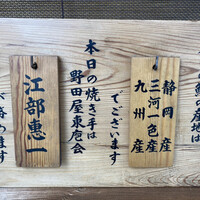 の産地は
静岡産
三河一色産
九州産
でございます
本日の焼き手は
野田屋東庖会
江部惠一
ます